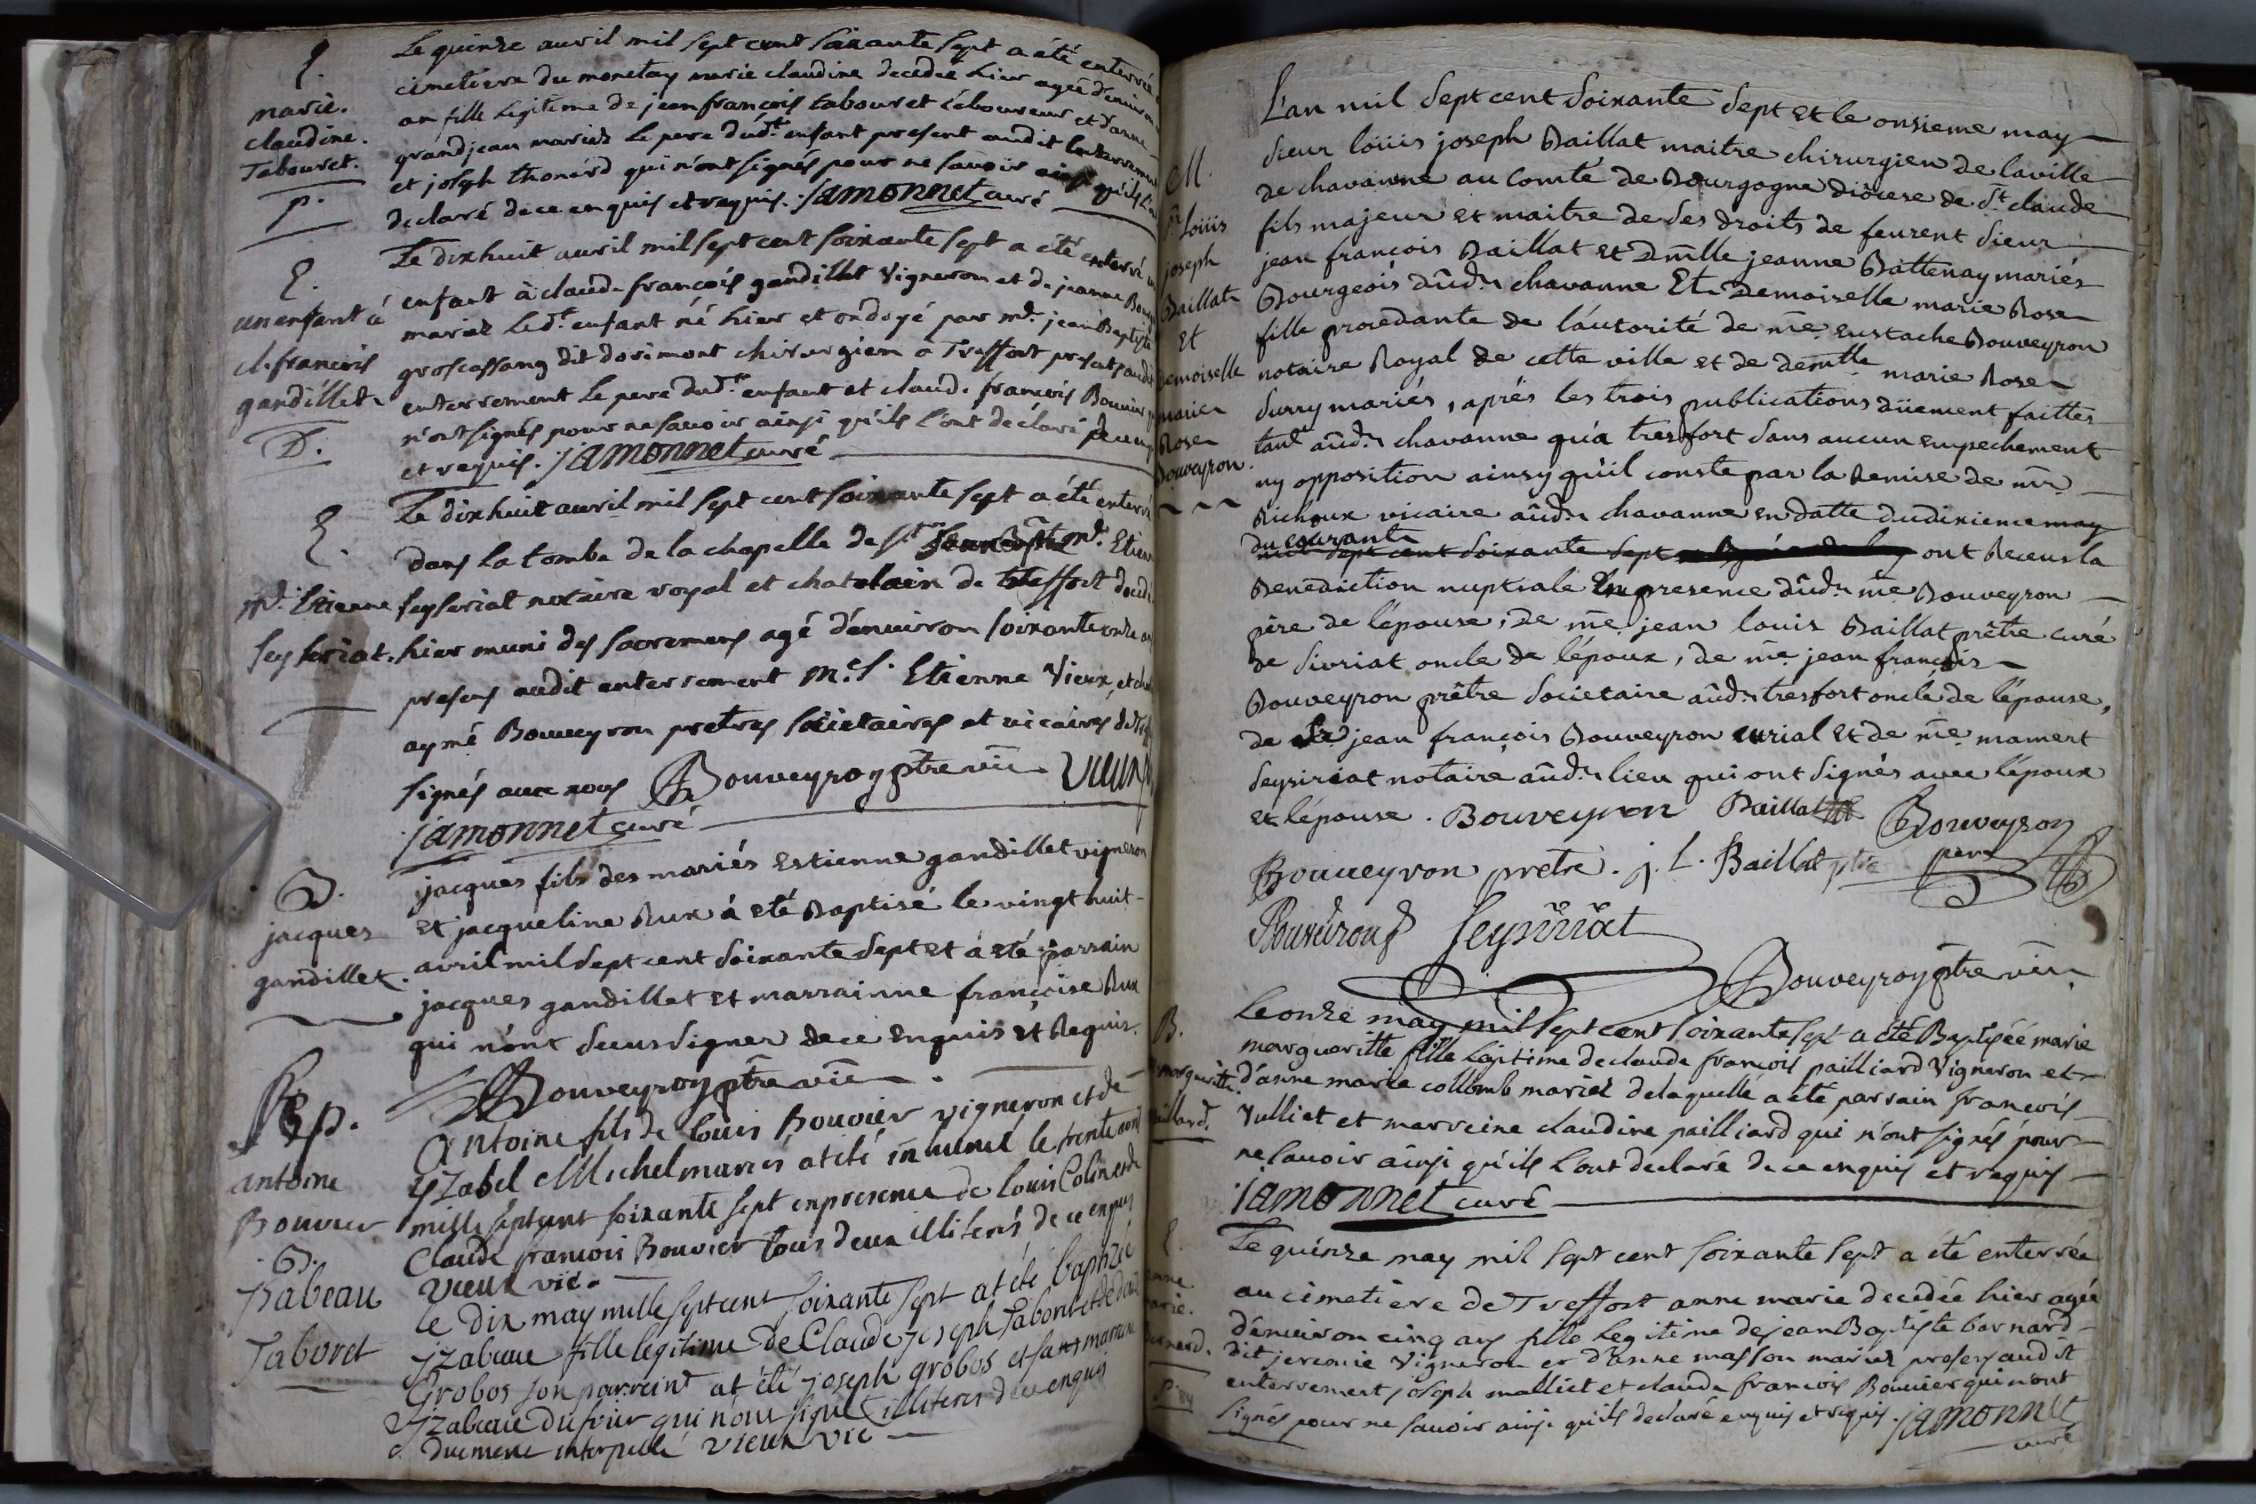 E.
marie.
claudine.
Tabouret.
P.
Le quinze auvril mil sept cent soixante sept a été enterrée
cimetiere du monetay marie claudine decedée hier agée d'enuiron
an fille legitime de jean françois tabouret laboureur et d'anne
grandjean mariez le pere dudt enfant present audit enterrement
et joseph thonérd qui n'ont signés pour ne sauoir ainsi qu'ils l'ont
declaré de ce enquis et requis. jamonnet curé
E.
un enfant á
cl. francois
gandillet
D.
Le dixhuit auvril mil sept cent soixante sept a été enterré un
enfant à claude françois gandillet vigneron et de jeanne
mariez ledt. enfant né hier et ondoyé par md. jean Baptiste
groscassang dit dorimont chirurgien a Treffort present audit
enterrement le pere dudt. enfant et claude françois Bouuier
n'ont signés pour ne sauoir ainsi qu'ils l'ont declaré de ce enquis
et requis. jamonnet curé
E.
md. Etienne
seyseriat.
Le dixhuit auvril mil sept cent soixante sept a été enterré
dans la tombe de la chapelle de st jean Bapte md. Etienne
seyseriat notaire royal et chatelain de treffort decedé
hier muni des sacremens agé d'enuiron soixante onze ans
presens audit enterrement Me. S. Etienne Vieux, et
aymé Bouueyron pretres societaires et vicaires de
signés auec nous Bouveyron ptre vic Vieux
jamonnet curé
B.
jacques
gandillet.
jacques fils des mariés estienne gandillet vigneron
et jacqueline Rux á eté Baptisé le vingt huit
avril mil sept cent soixante sept et á eté parrain
jacques gandillet et marrainne françoise Rux
qui n'ont sceus signer de ce enquis et Requis.
Bouveyron ptre vic
Sep.
antoine
Bouvier
Antoine fils de louis Bouvier vigneron et de
yzabel Michel mariés at été inhumé le trente avril
mille sept cent soixante sept en presence de louis Colin et de
Claude francois Bouvier tous deux illiterés de ce enquis
Vieux vic.
B.
Isabeau
Taboret
le dix may mille sept cent soixante sept at été baptizée
yzabeau fille legitime de Claude joseph Taboret et de
Grobos son parrein at été joseph grobos et sa marraine
yzabeau dufour qui n'ont signé illiterés de ce enquis
duement interpellé Vieux vic
M.
Sr Loüis
joseph
Baillat
Et
Demoiselle
marie
Rose
Bouveyron.
L'an mil sept cent soixante sept et le onsieme may
sieur loüis joseph Baillat maitre chirurgien de la ville
de chavanne au comté de Bourgogne diocese de st. claude
fils majeur et maitre de ses droits de feurent sieur
jean françois Baillat et dmlle jeanne Battenay mariés
Bourgeois dûd. chavanne Et Demoiselle marie Rose
fille procedante de l'autorité de me eustache Bouveyron
notaire Royal de cette ville et de demlle marie Rose
Surry mariés, aprés les trois publications düement faittes
tant aûd. chavanne qu'a tresfort sans aucun empechement
ny opposition ainsy qu'il conste par la Remise de mr
Richoux vicaire aûd. chavanne en datte du dixieme may
du courante
mil sept cent soixante sept ont Receus la
Benediction nuptiale En presence dûd. me Bouveyron
père de l'épouse, De me jean louis Baillat prêtre curé
de sivriat oncle de l'époux, de me jean françois
Bouveyron prêtre societaire aûd. tresfort oncle de l'épouse,
de Sr jean françois Bouveyron curial et de me mamert
seysiriat notaire aûd. lieu qui ont signés avec l'époux
et l'épouse. Bouveyron Baillat Bouveyron
pere
Bouveyron pretre. j. L. Baillat ptre
Bouveiron Seysiriat
Bouveyron ptre vic
B.
marguerite
Paillard.
Le onze may mil sept cent soixante sept a été Baptisée marie
marguerite fille legitime de claude françois pailliard vigneron et
d'anne marie collomb mariez de laquelle a été parrain françois
Vulliet et marreine claudine pailliard qui n'ont signés pour
ne sauoir ainsi qu'ils l'ont declaré de ce enquis et requis
jamonnet curé
E.
anne
marie.
bernard.
Le quinze may mil sept cent soixante sept a été enterrée
au cimetiere de Treffort anne marie decedée hier agée
d'enuiron cinq ans fille legitime de jean Baptiste barnard
dit jeromie vigneron et d'anne masson mariez presens audit
enterrement joseph malliet et claude francois Bouuier qui n'ont
signés pour ne sauoir ainsi qu'ils declaré enquis et requis. jamonnet
curé